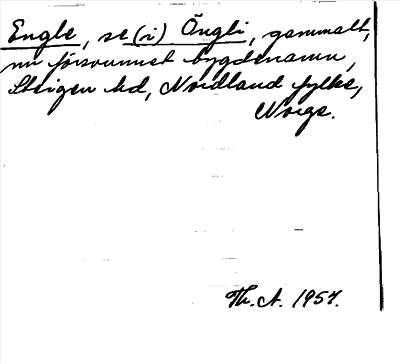 Engle, se (i) Öngli, gammalt,
nu försvunnet bygdenamn,
Steigen hd, Nordland fylke,
Norge.
Th. A. 1957.